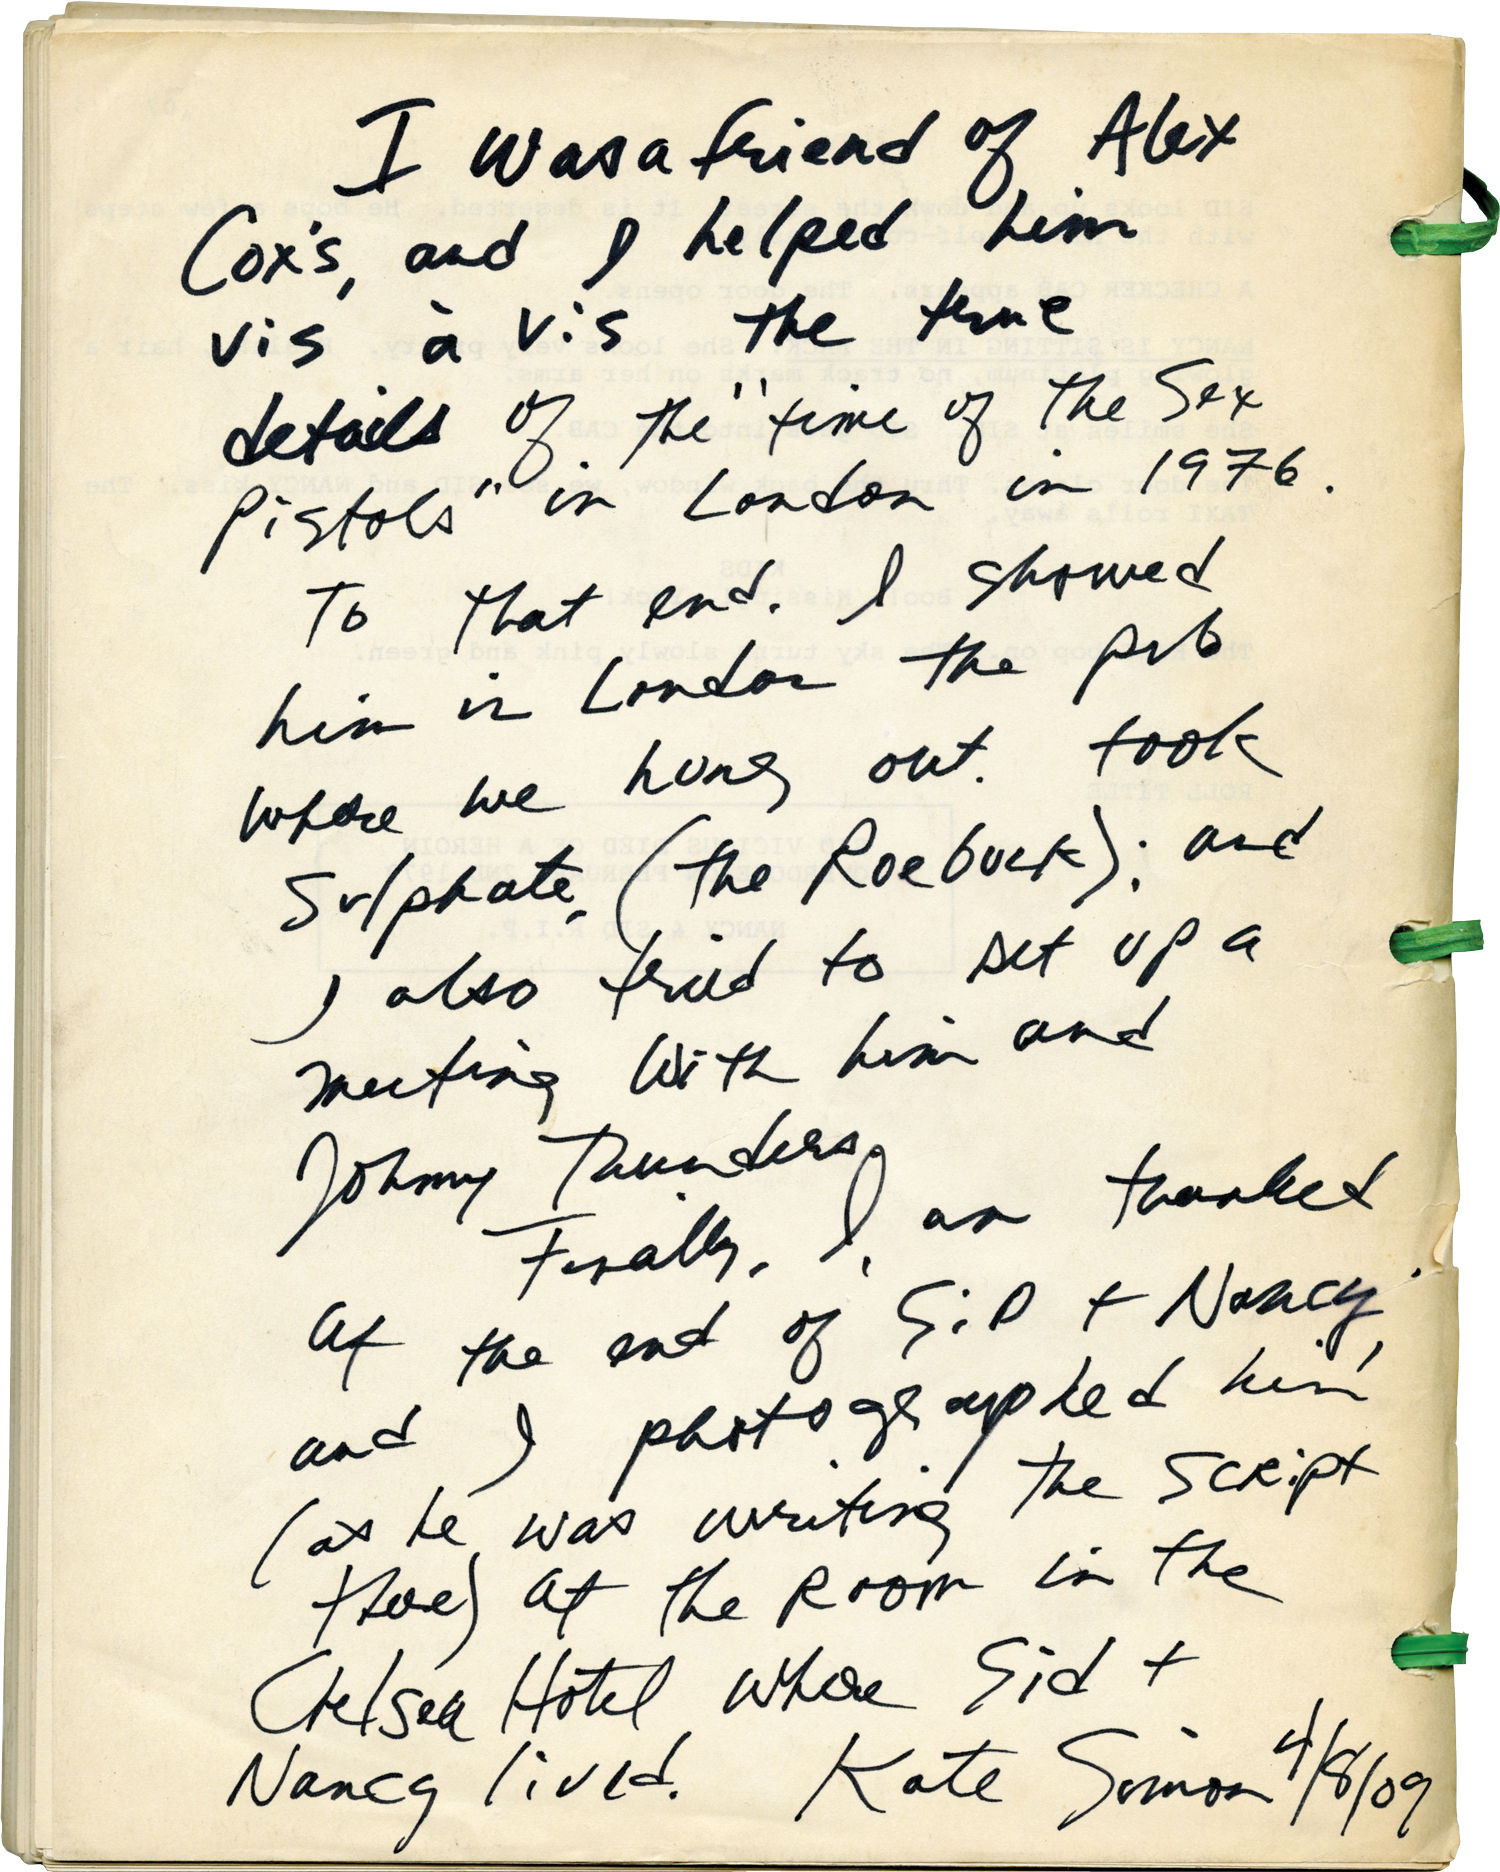 I was a friend of Alex
Cox's, and I helped him
vis à vis the true
details of the "time of the Sex
Pistols" in London in 1976.
To that end. I showed
him in London the pub
where we hung out. took
Sulphate, (the Roebuck); and
I also tried to set up a
meeting with him and
Johnny Thunders.
Finally, I am thanked
at the end of SiD + Nancy,
and I photographed him
(as he was writing the script
there) at the room in the
Chelsea Hotel where Sid +
Nancy lived. Kate Simon 4/8/09